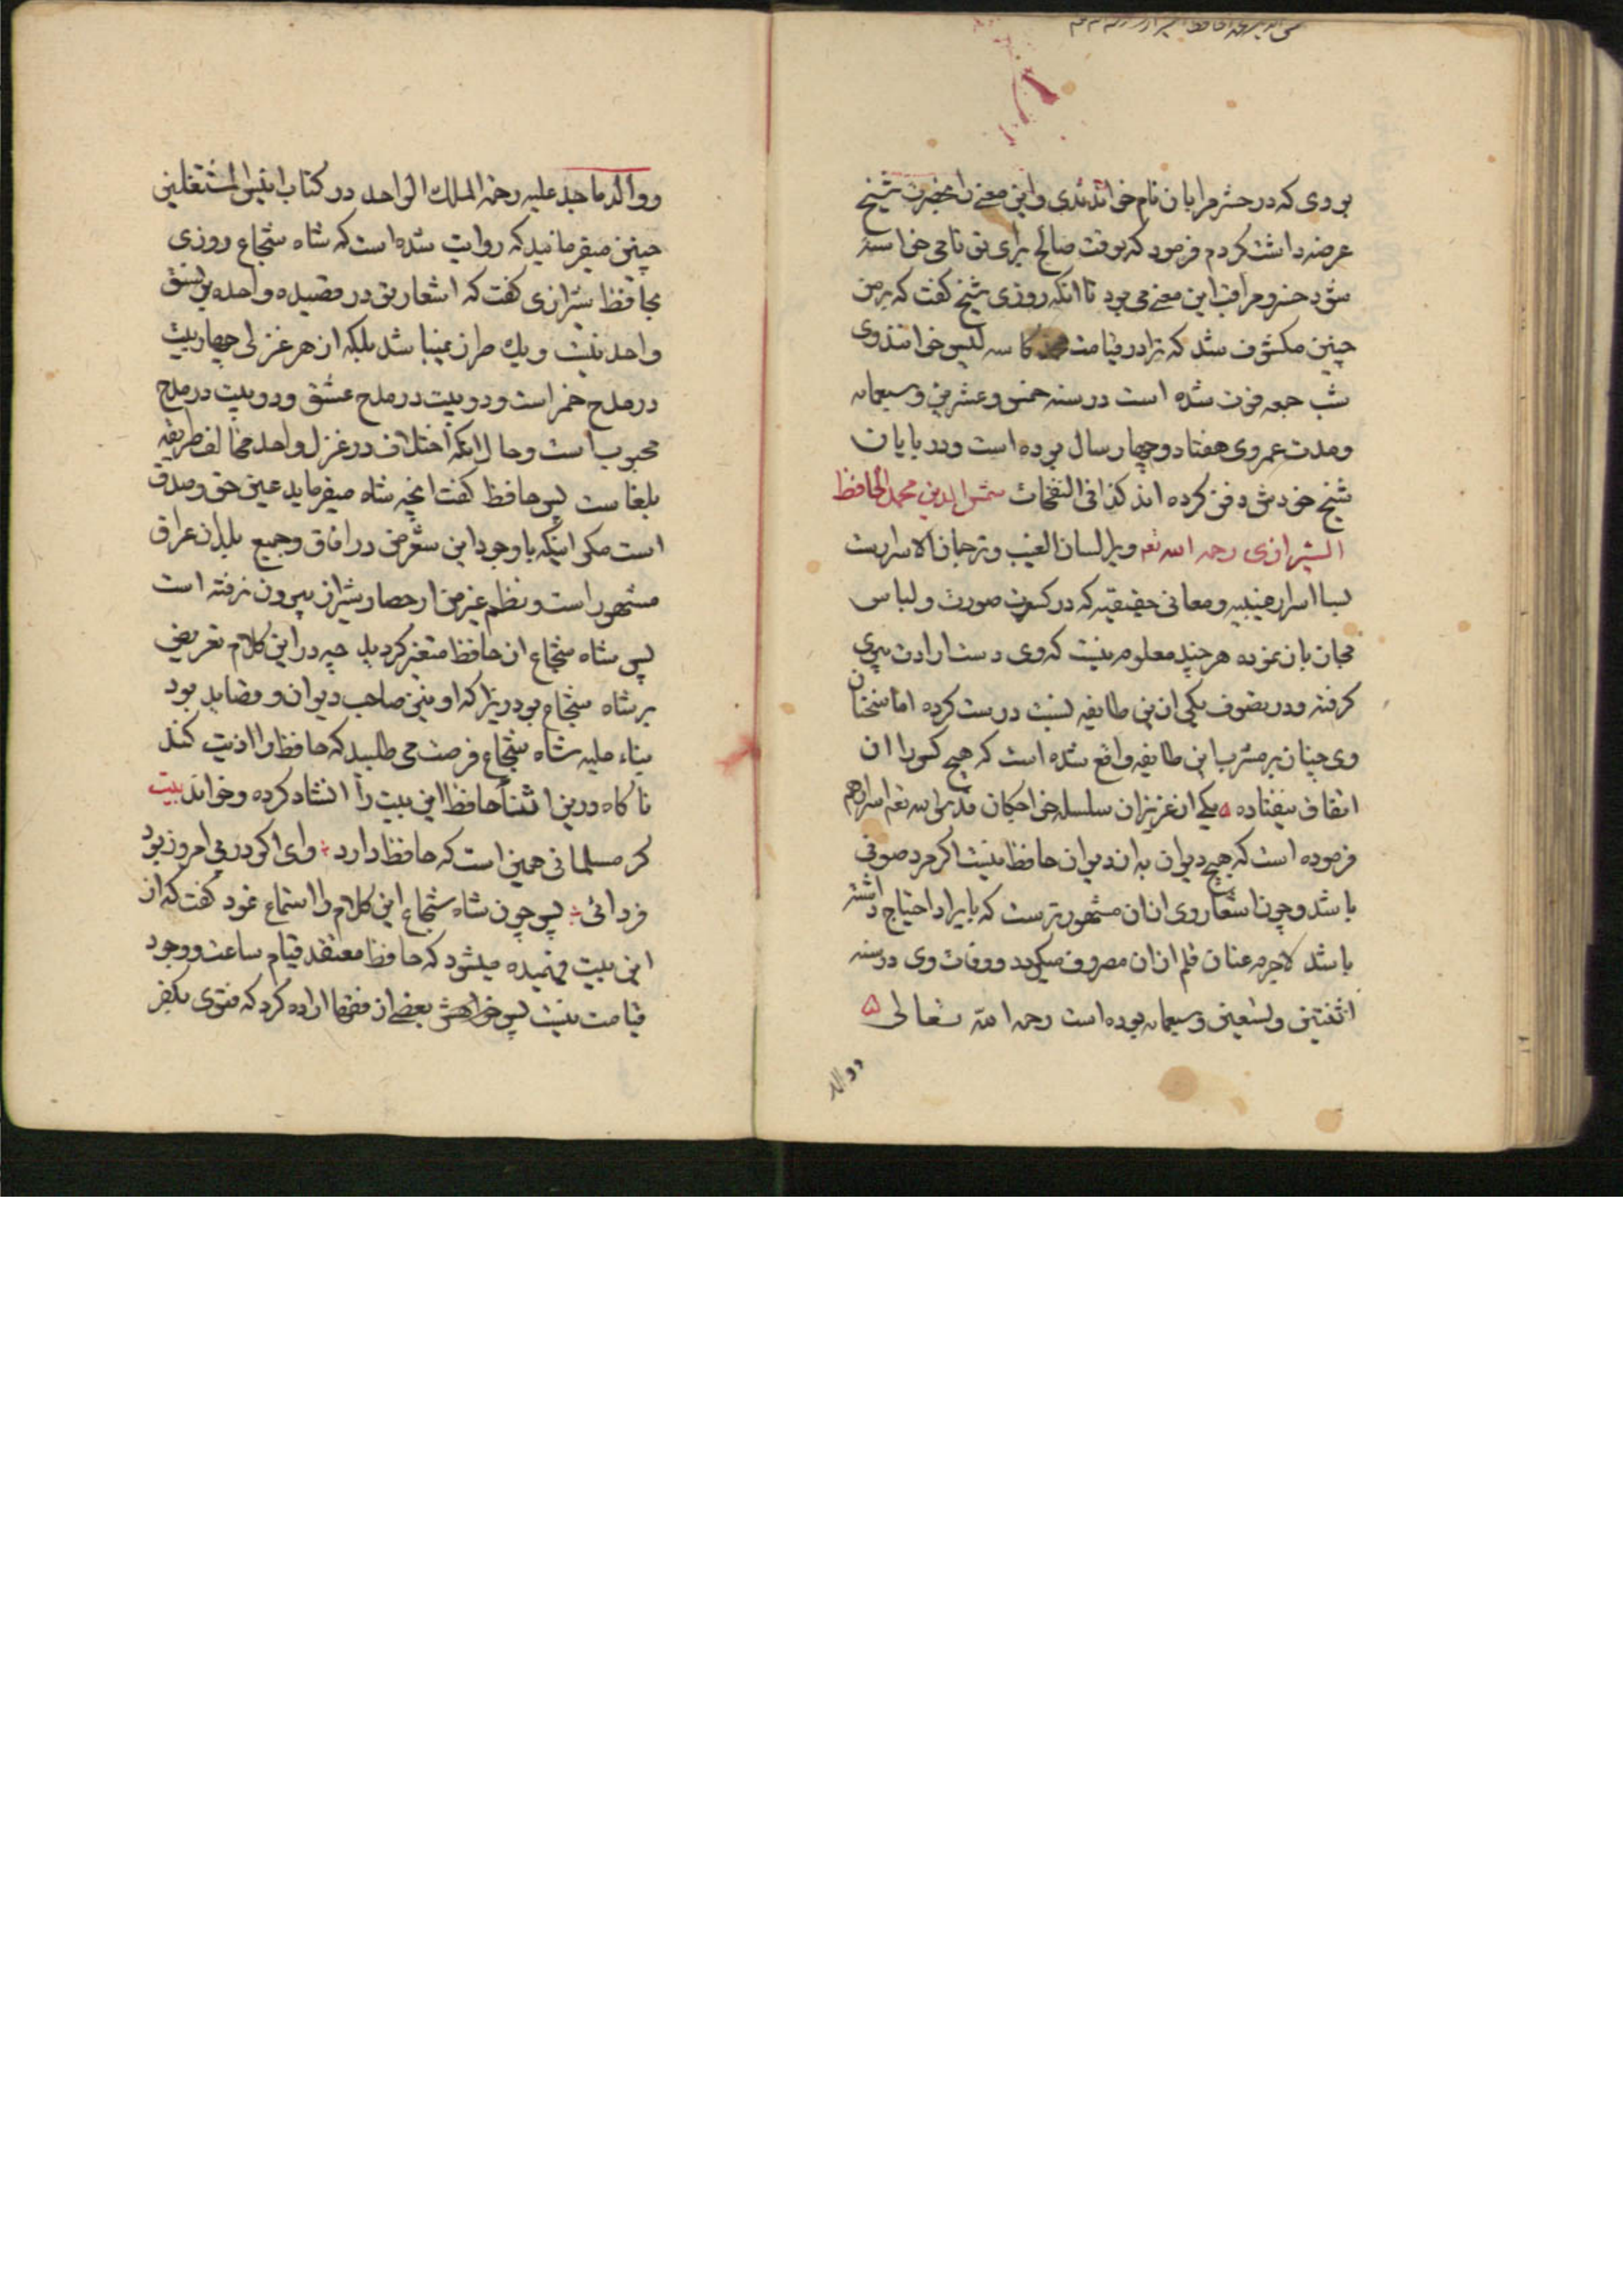 بودی که در حشر مرا بان نام خواندندی و این معنی را بحضرت شیخ
عرضه داشت کردم فرمود که بوقت صالح برای تو نامی خواسته
شود خسرو مراقب این معنی می بود تا انکه روزی شیخ گفت که بر من
چنین مکشوف شد که ترا در قیامت محمد کاسه لیس خوانند وی
شب جمعه فوت شده است در سنه خمس و عشرین و سبعمائه
و مدت عمر وی هفتاد و چهار سال بوده است و در پایان
شیخ خودش دفن کرده اند کذا فی النفحات شمس الدین محمد الحافظ
الشیرازی رحمه الله تعه ویرا لسان الغیب و ترجمان الاسرارست
بسا اسرار غیبیه و معانی حقیقیه که در کسوت صورت و لباس
مجاز باز نموده هر چند معلوم نیست که وی دست ارادت پیری
کرفته و در تصوف بیکی از این طایفه نسبت درست کرده اما سخنان
وی چنان بر مشرب این طایفه واقع شده است که هیچ کس را ان
اتفاق نیفتاده ۵ یکی از عزیزان سلسله خواجکان قدس الله تعه اسرارهم
فرموده است که هیچ دیوان به از دیوان حافظ نیست اکر مرد صوفی
باشد و چون اشعار وی از ان مشهورترست که بایراد احتیاج داشته
باشد لاجرم عنان قلم از ان مصروف میکردد و وفات وی در سنه
اثنتین و تسعین و سبعمائه بوده است رحمه الله تعالی ۵
ووالد
ووالد ماجد علیه رحمة الملك الواحد در کتاب انیس المشتغلین
چنین میفرمانید که روایت شده است که شاه شجاع روزی
بحافظ شیرازی گفت که اشعار تو در قصیده واحده بر نسق
واحد نیست و یك طرز نمیباشد بلکه از هر غزلی چهار بیت
در مدح خمر است و دو بیت در مدح عشق و دو بیت در مدح
محبوب است و حال انکه اختلاف در غزل واحد مخالف طریقه
بلغاست پس حافظ کفت انچه شاه میفرماید عین حق و صدق
است مکر اینکه با وجود این شعر من در افاق و جمیع بلدان عراق
مشهور است و نظم غیر من از حصار شیراز بیرون نرفته است
پس شاه شجاع از حافظ متغیر کردید چه در این کلام تعریض
بر شاه شجاع بود زیرا که او نیز صاحب دیوان و قصاید بود
بناء علیه شاه شجاع فرصت می طلبید که حافظ را اذیت کند
نا کاه در ین اثنا حافظ این بیت را انشاد کرده و خواند بیت
کر مسلمانی همین است که حافظ دارد ؞ وای اکر در پی امروز بود
فردائی ؞ پس چون شاه شجاع این کلام را استماع نمود کفت که از
این بیت فهمیده میشود که حافظ معتقد قیام ساعت و وجود
قیامت نیست پس خواهش بعضی از فقها اراده کرد که فتوی بکفر